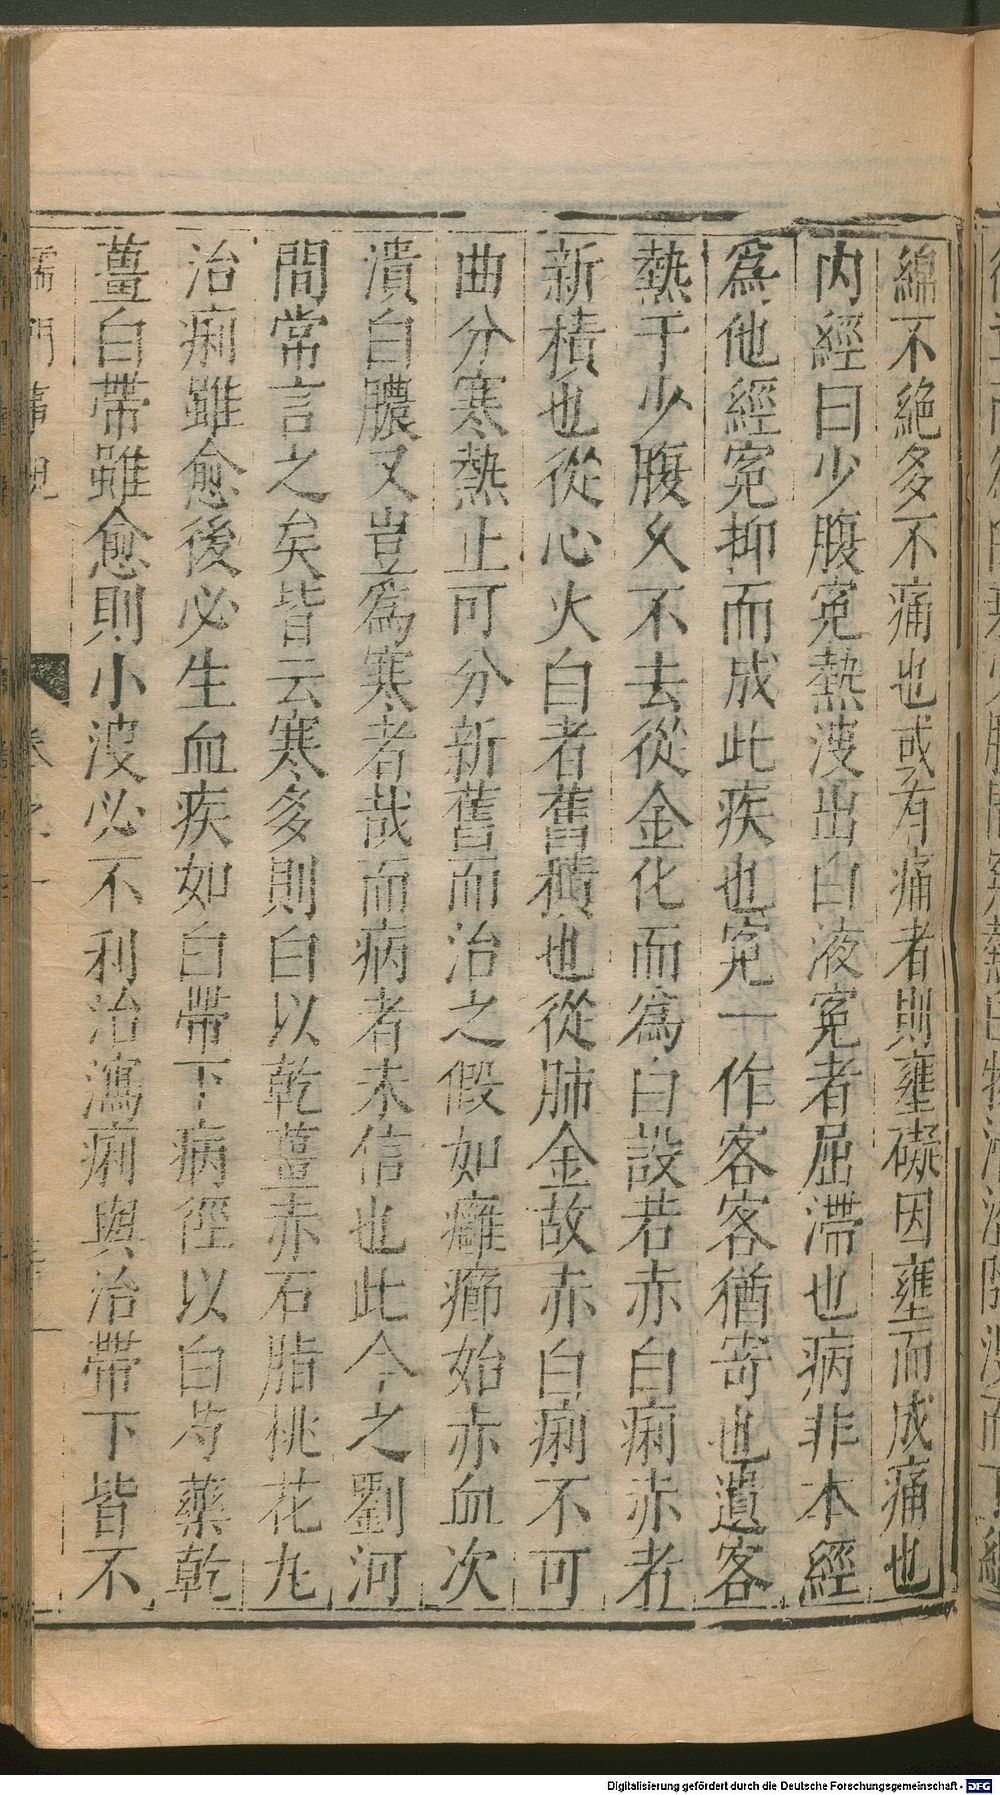 綿不絶多不痛也或有痛者則壅礙因壅而成痛也
内經曰少腹寃熱溲出白液寃者屈滯也病非本經
爲他經寃抑而成此疾也寃一作客客猶寄也遺客
熱于少腹乆不去從金化而爲白設若赤白痢赤者
新積也從心火白者舊積也從肺金故赤白痢不可
曲分寒熱止可分新舊而治之假如癰癤始赤血次
潰白膿又豈爲寒者哉而病者未信也此今之劉河
間常言之矣皆云寒多則白以乾薑赤石脂桃花丸
治痢雖愈後必生血疾如白帶下病徑以白芍藥乾
薑白帶雖愈則小溲必不利治瀉痢與治帶下皆不
儒門事親
卷之一
Digitalisierung gefördert durch die Deutsche Forschungsgemeinschaft - DFG